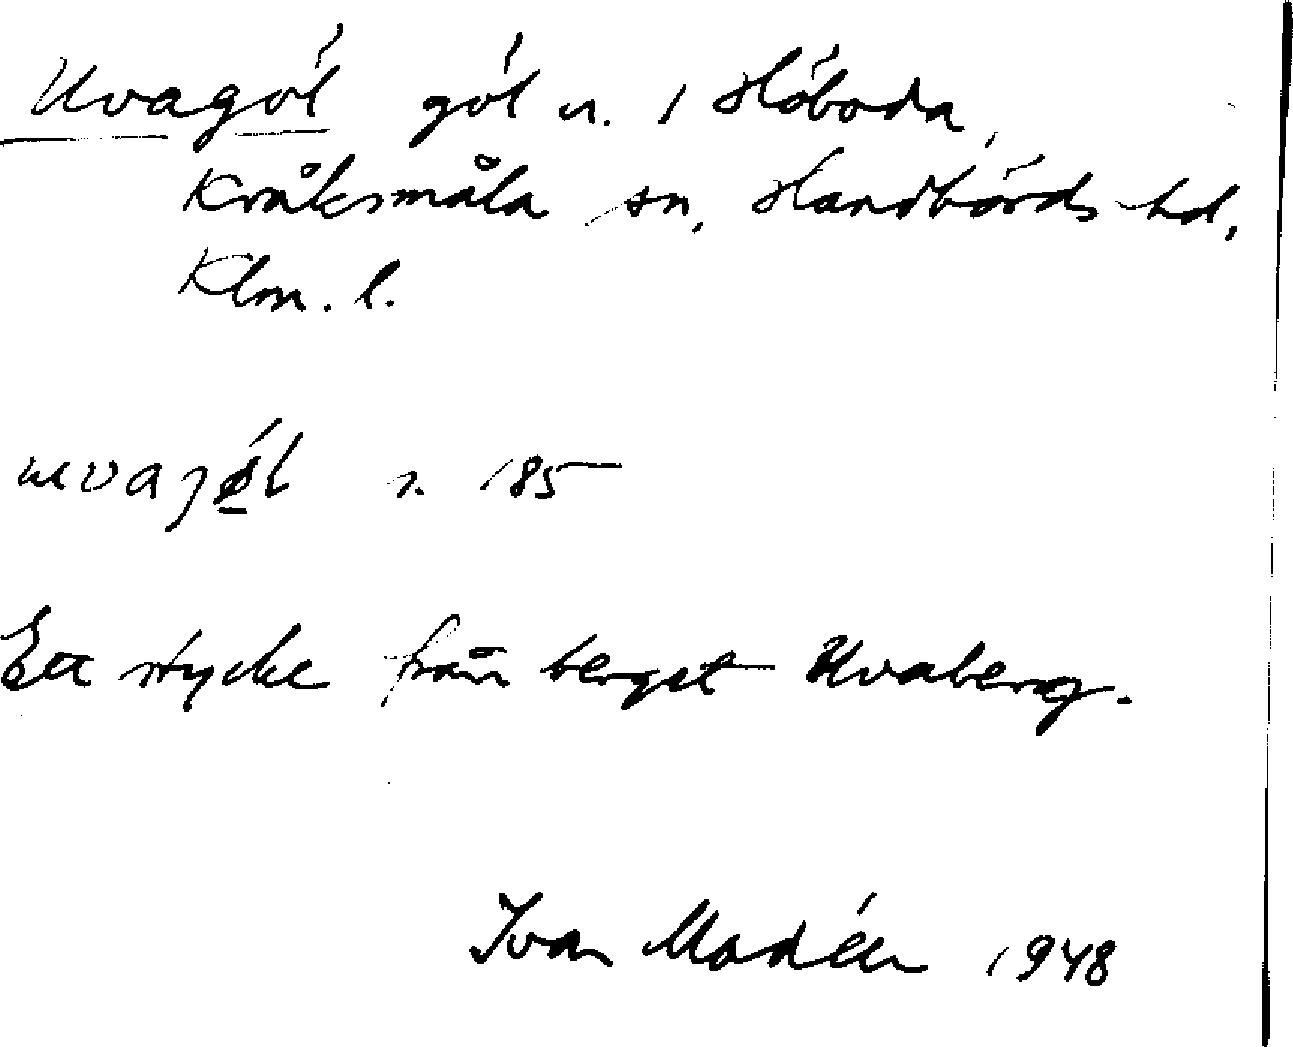 Uvagöl göl n. 1 Höboda,
Kråksmåla sn, Handbörds hd,
Klm. l.
185
Ett stycke från berget Uvaberg.
Ivar Modéer 1948